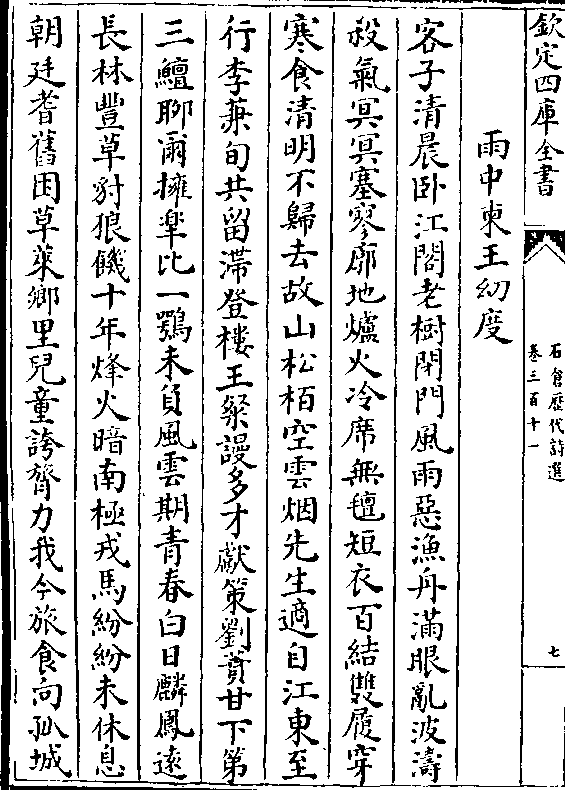 欽定四庫全書
石倉歷代詩選
卷三百十一
七
雨中柬王幼度
客子清晨卧江閣老樹閉門風雨惡漁舟滿眼亂波濤
殺氣冥冥塞寥廓地爐火冷席無氊短衣百結雙履穿
寒食清明不歸去故山松栢空雲烟先生適自江東至
行李兼旬共留滯登樓王粲謾多才獻策劉蕡甘下第
三鱣聊爾擁臯比一鶚未負風雲期青春白日麟鳳遠
長林豐草豺狼饑十年烽火暗南極戎馬紛紛未休息
朝廷耆舊困草萊鄉里兒童誇膂力我今旅食向孤城